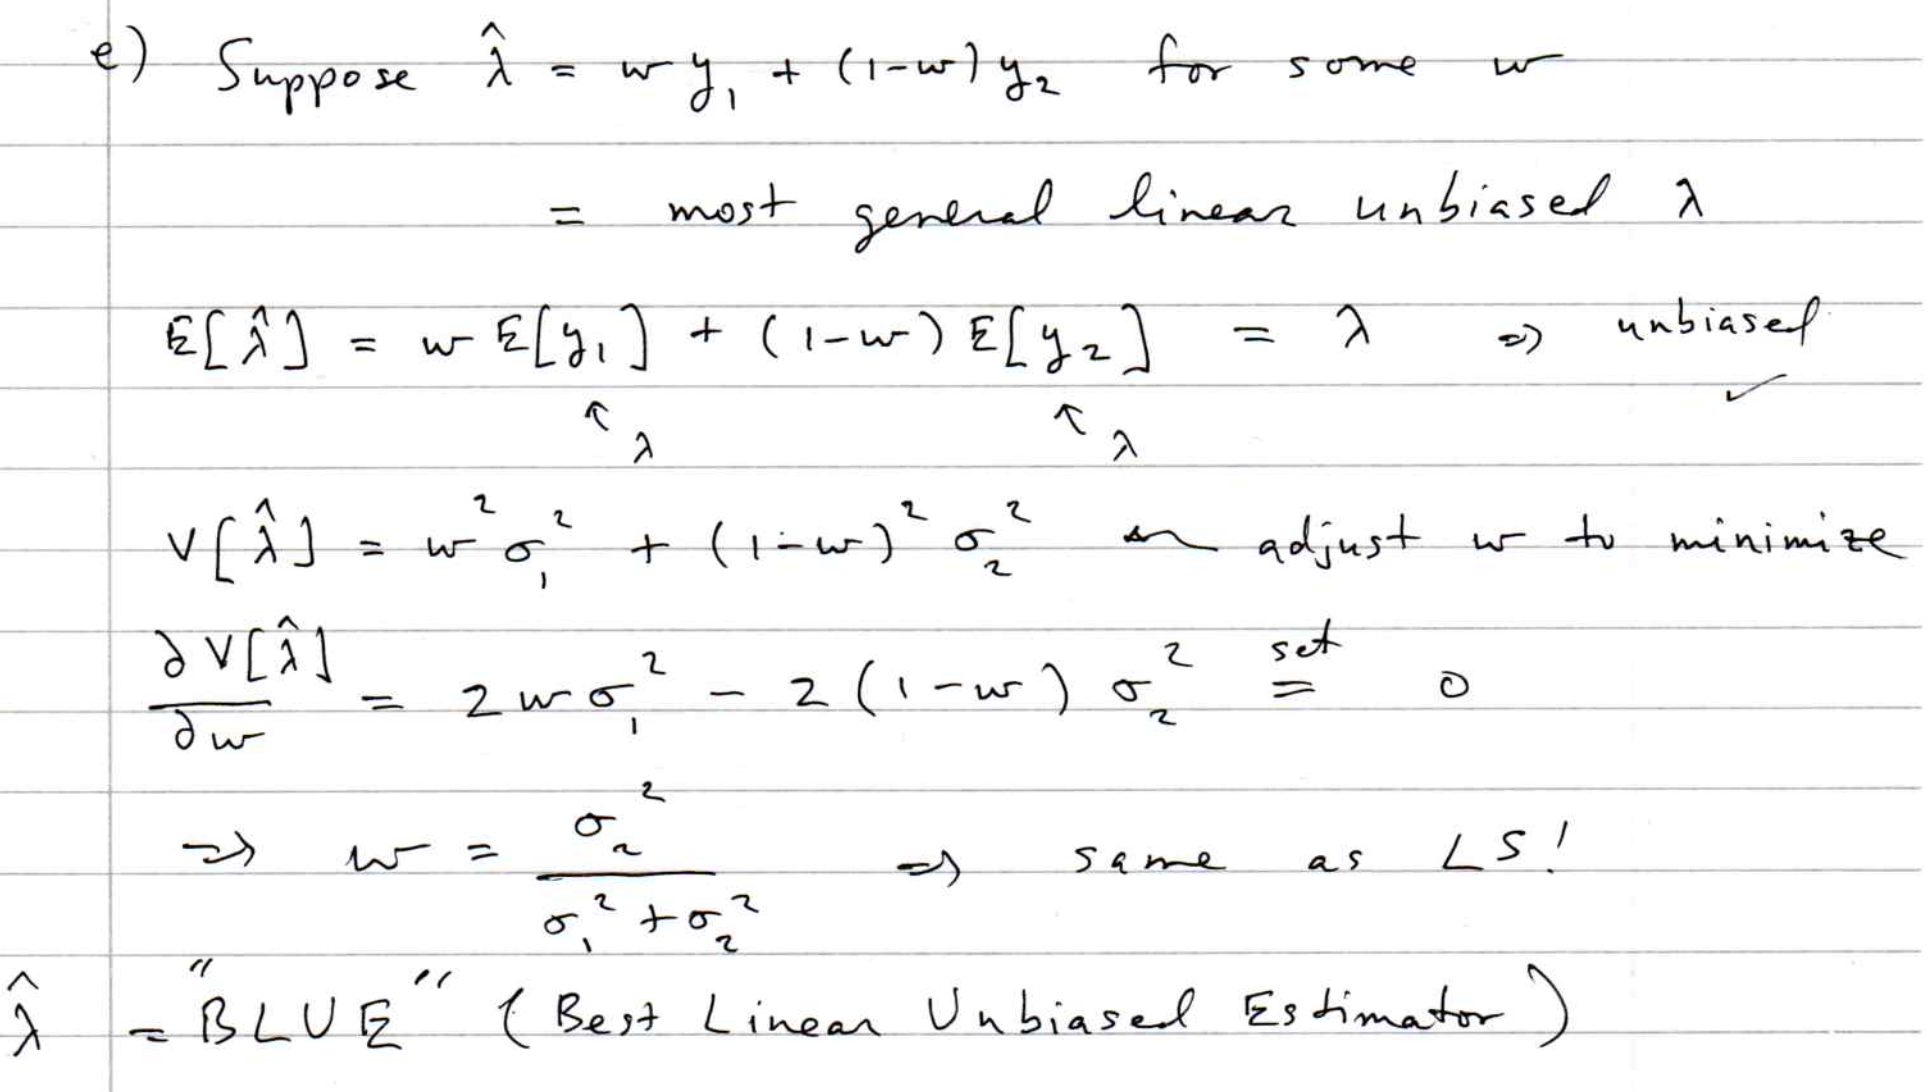 e) Suppose λ̂ = w y₁ + (1-w) y₂ for some w
= most general linear unbiased λ
E[λ̂] = w E[y₁] + (1-w) E[y₂] = λ ⇒ unbiased ✓
↑ λ ↑ λ
V[λ̂] = w² σ₁² + (1-w)² σ₂² ← adjust w to minimize
∂V[λ̂]/∂w = 2wσ₁² - 2(1-w) σ₂² set = 0
⇒ w = σ₂² / (σ₁² + σ₂²) ⇒ same as LS!
λ̂ = "BLUE" (Best Linear Unbiased Estimator)